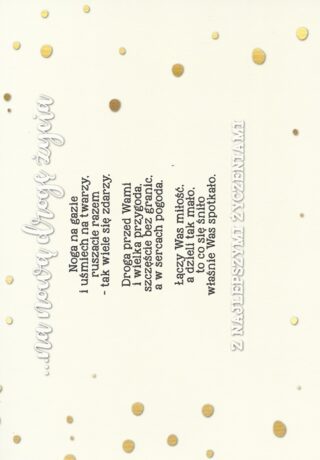 ...na nową drogę życia
Noga na gazie
i uśmiech na twarzy,
ruszacie razem
- tak wiele się zdarzy.
Droga przed Wami
i wielka przygoda,
szczęście bez granic,
a w sercach pogoda.
Łączy Was miłość,
a dzieli tak mało,
to co się śniło
właśnie Was spotkało.
Z NAJLEPSZYMI ŻYCZENIAMI